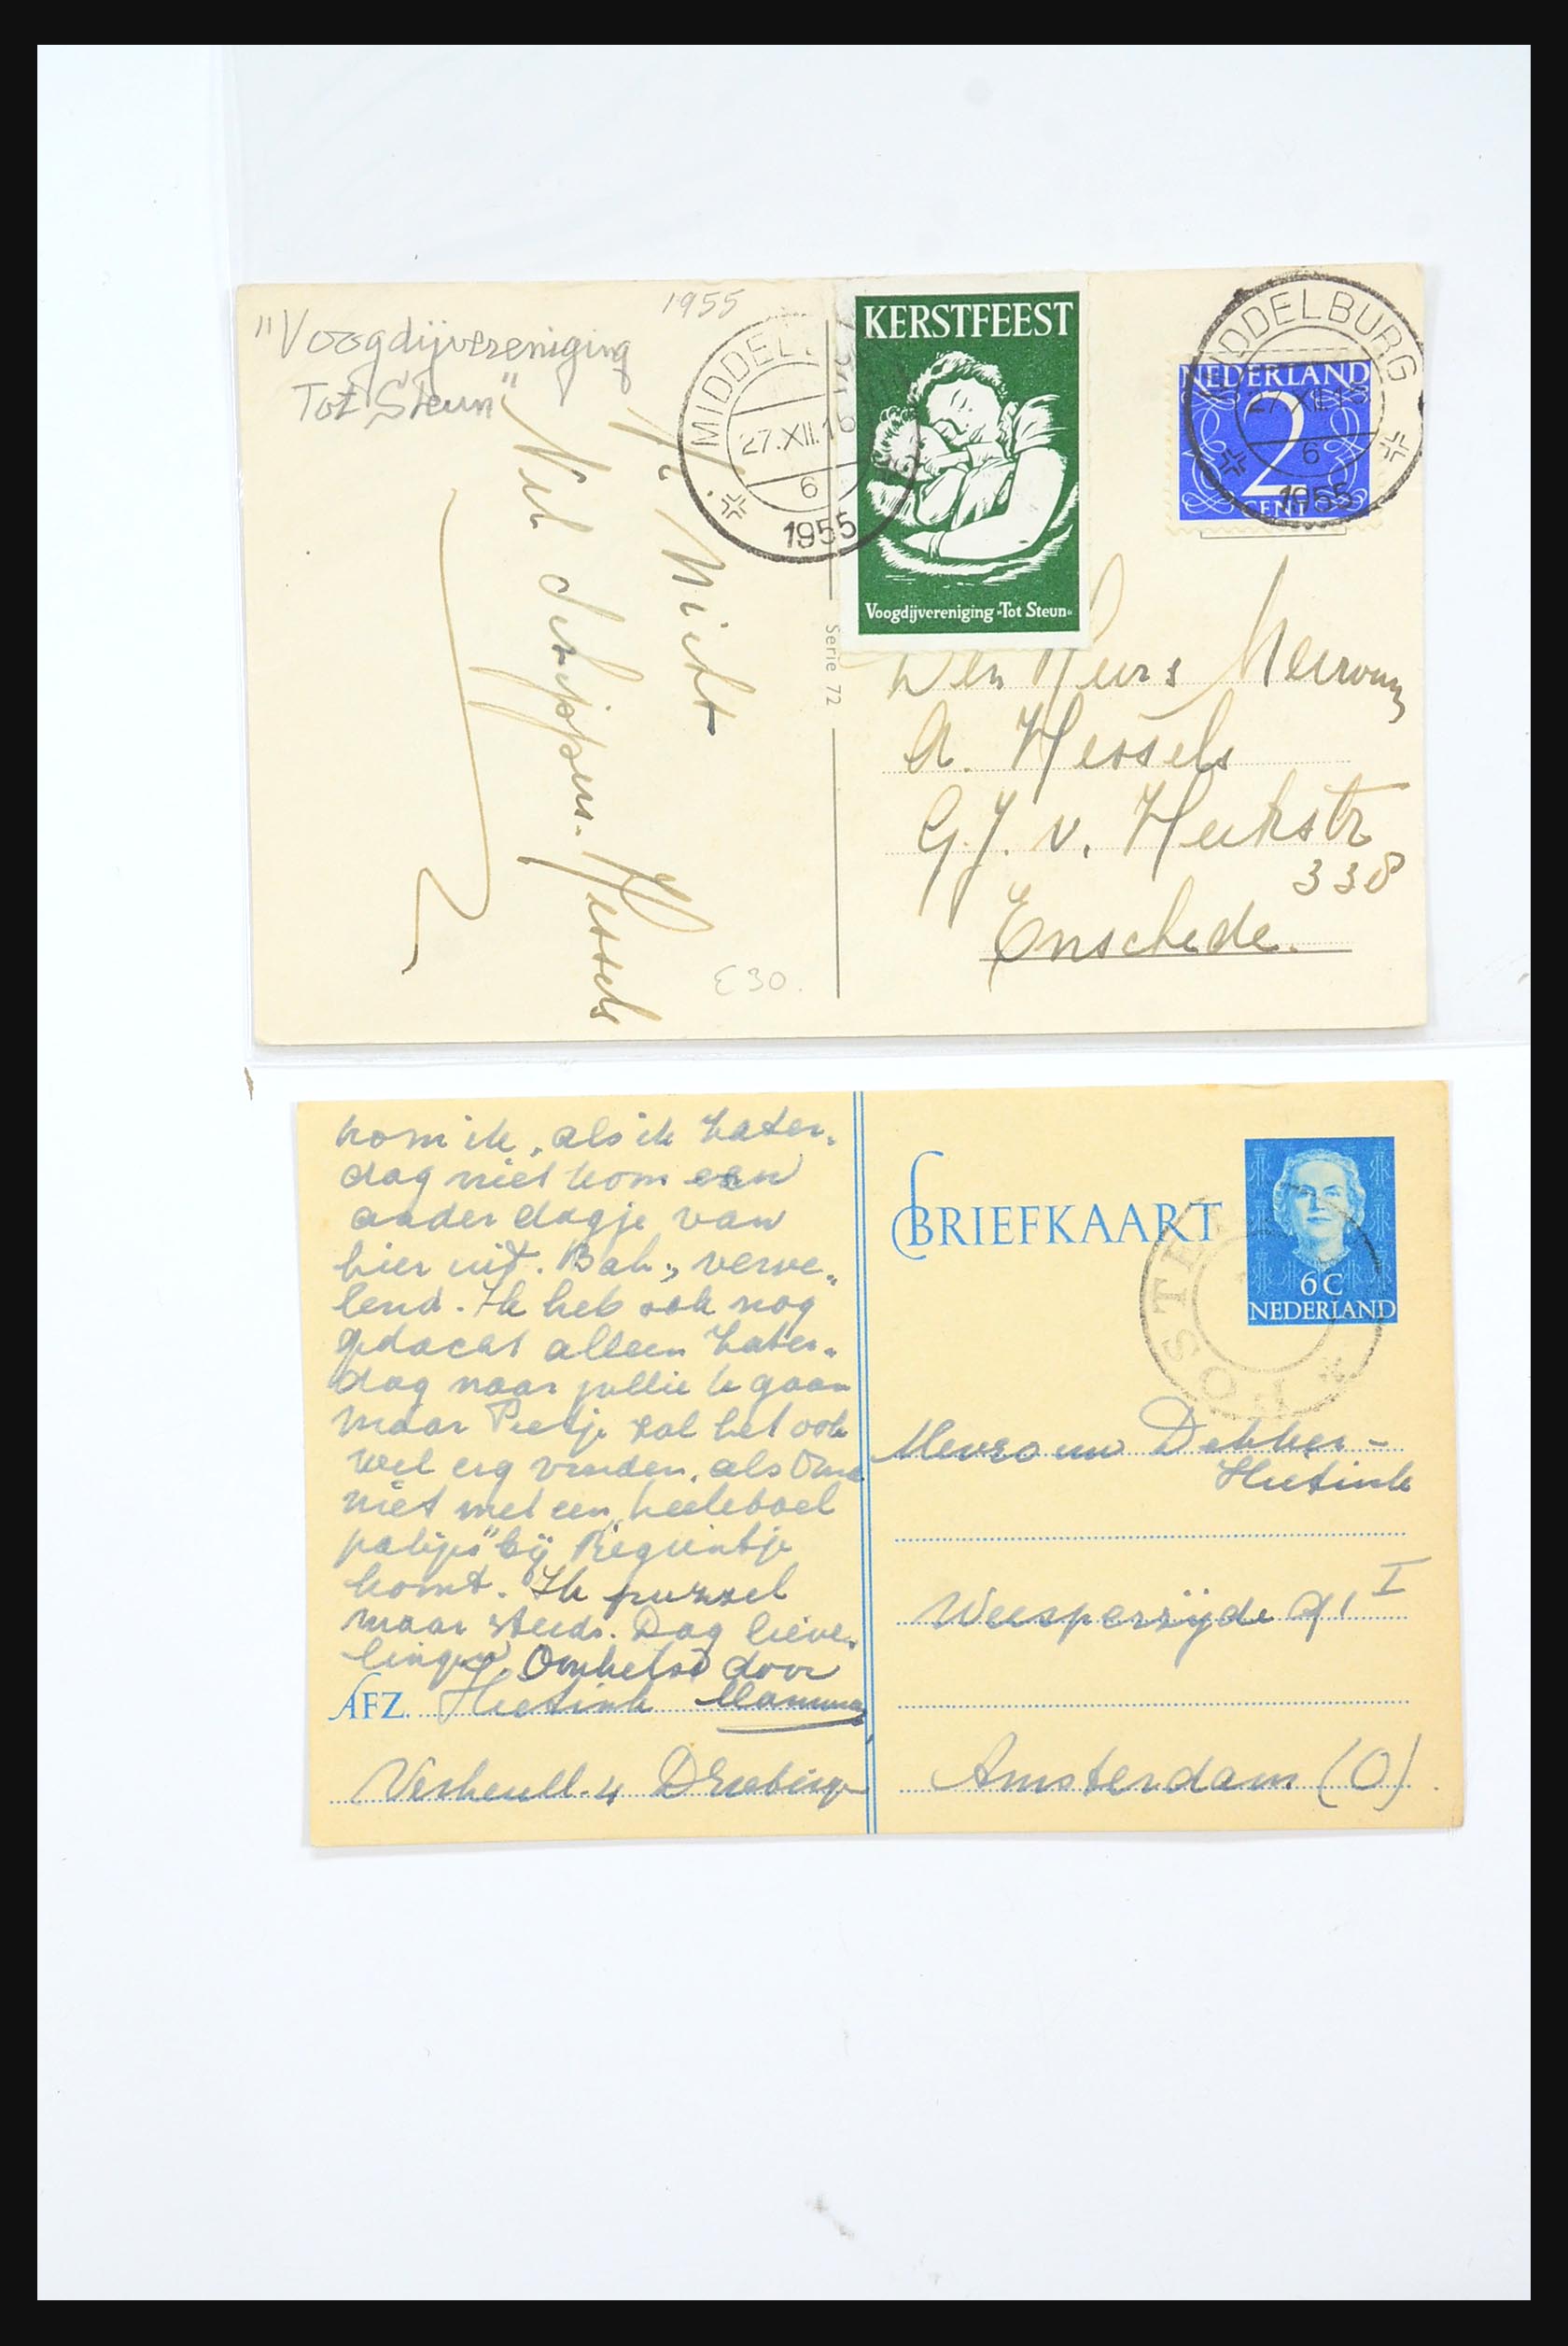 1955
"Voogdijvereniging
Tot Steun"
MIDDEL
27.XII.16
6
1955
KERSTFEEST
Voogdijvereniging „Tot Steun“
MIDDELBURG
27.XII.16
6
1955
NEDERLAND
2
CENT
Nicht
Schippers-Hessels
Serie 72
Den Heer Mevrouw
A. Hessels
G.J. v. Heekstr
338
Enschede.
E30.
kom ik, als ik Zater-
dag niet kom een
ander dagje van
hier uit. Bah, verve-
lend. Ik heb ook nog
gedacht alleen Zater-
dag naar jullie te gaan
maar Pietje zal het ook
wel erg vinden, als Oma
niet met een heleboel
pakjes" bij
komt. Ik puzzel
maar steeds. Dag lieve-
lingen. Omhelsd door
AFZ. Hietink Mamma
Verheull. 4 Driebergen
BRIEFKAART
6 C
NEDERLAND
OOSTE
Mevrouw Dekker-
Hietink
Weesperzijde 91 I
Amsterdam (O).